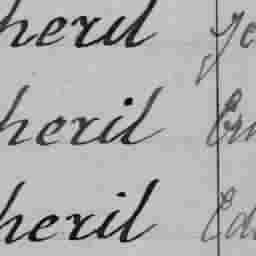 heril Je
heril Em
heril Ed